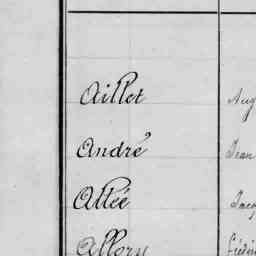 Aillet Aug
André Jean
Attée Jacq
Allory Frédér